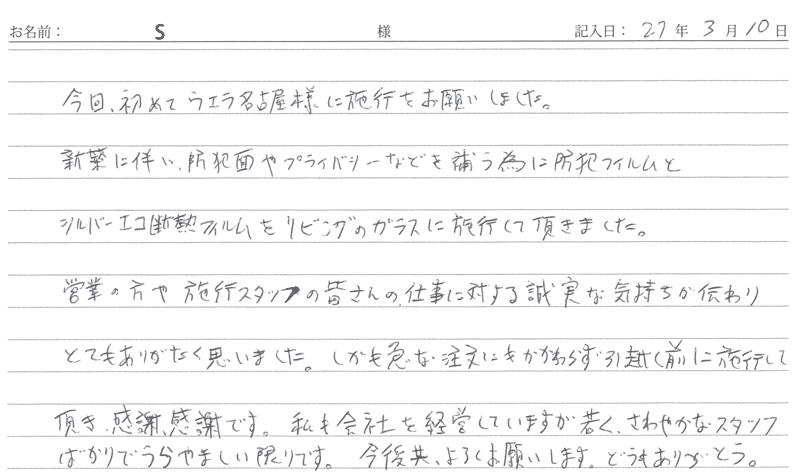 お名前： S 様 記入日： 27 年 3 月 10 日
今回、初めてウエラ名古屋様に施行をお願いしました。
新築に伴い、防犯面やプライバシーなどを補う為に防犯フィルムと
シルバーエコ断熱フィルムをリビングのガラスに施行して頂きました。
営業の方や施行スタッフの皆さんの、仕事に対する誠実な気持ちが伝わり
とてもありがたく思いました。しかも急な注文にもかかわらず引越し前に施行して
頂き、感謝、感謝です。私も会社を経営していますが若く、さわやかなスタッフ
ばかりでうらやましい限りです。今後共、よろしくお願いします。どうもありがとう。